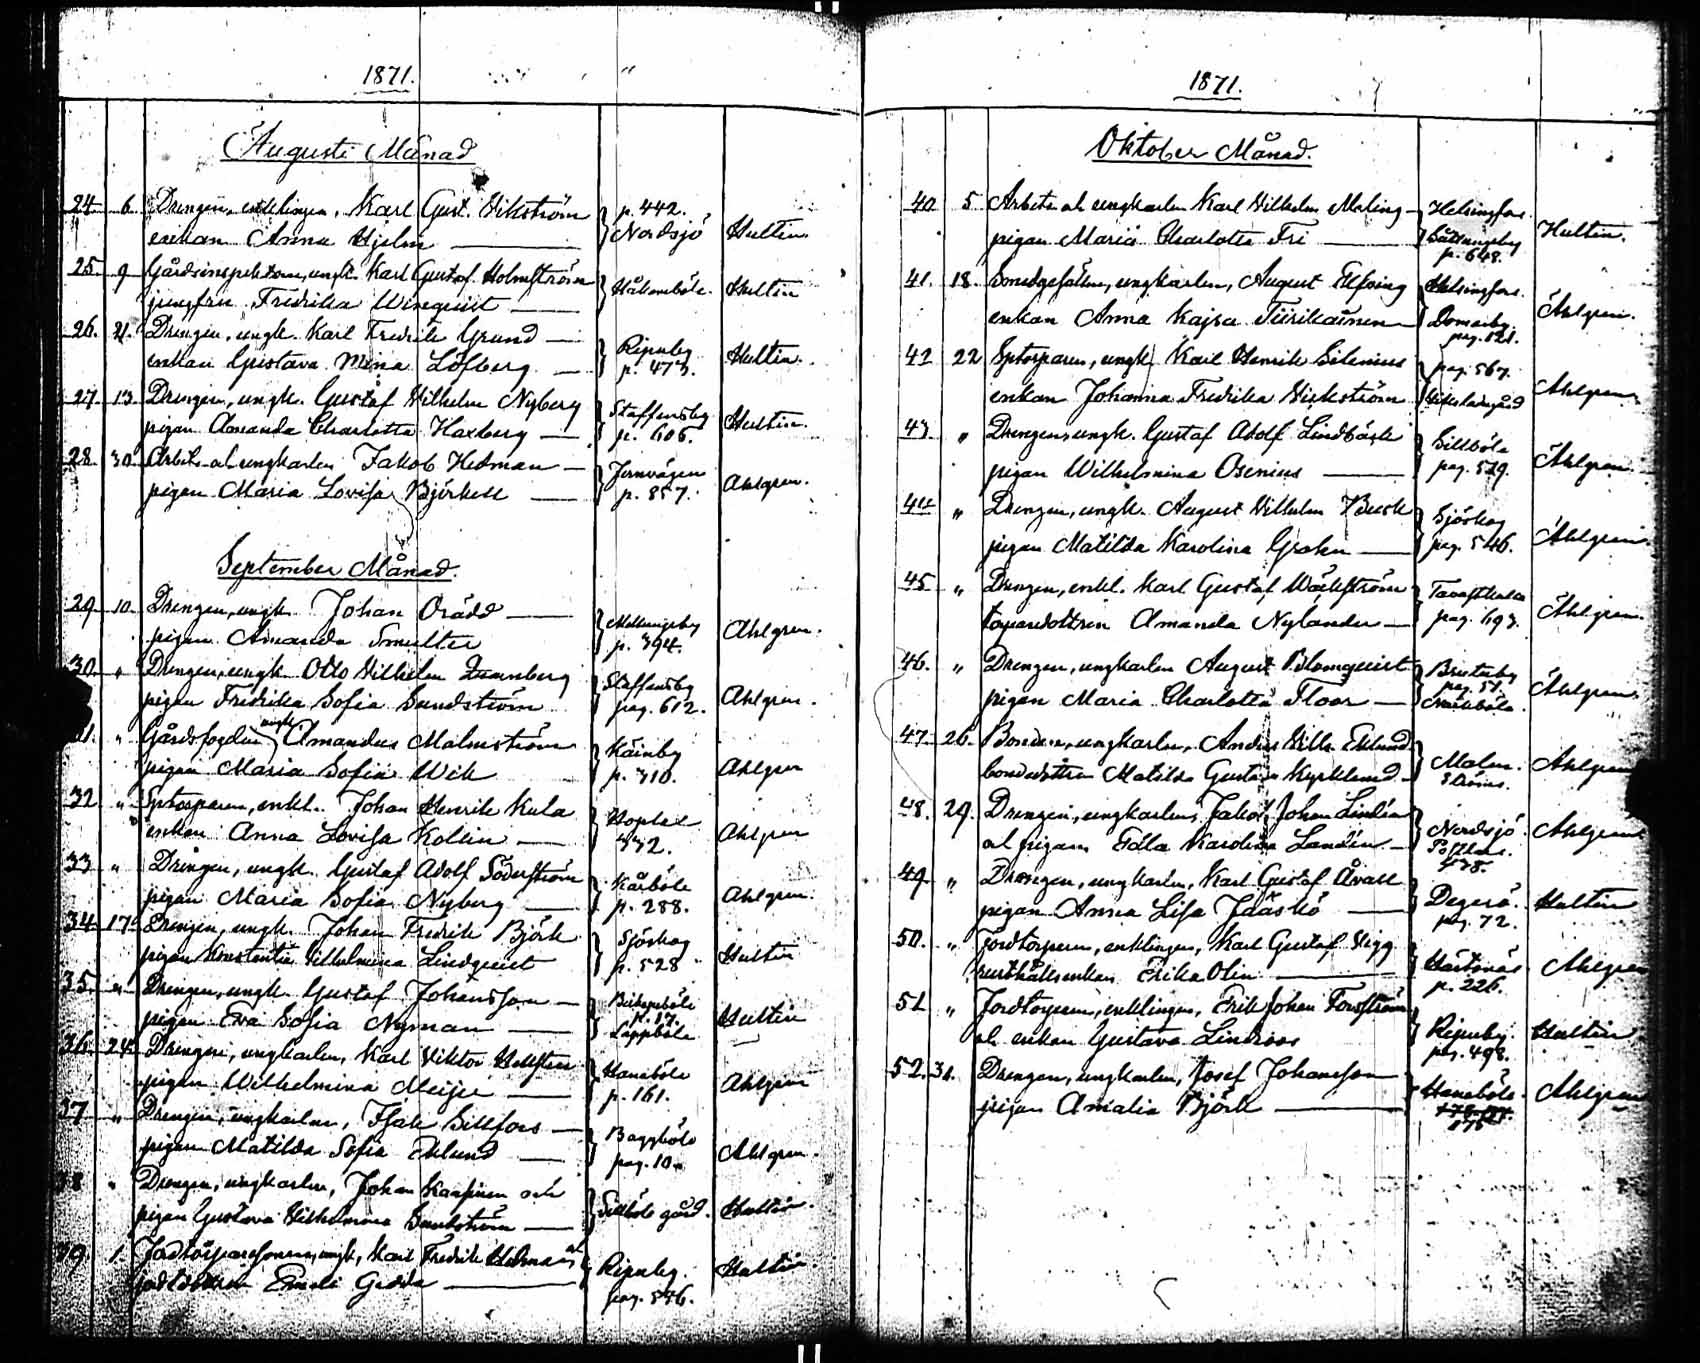 1871.
Augusti Månad
24. 6. Drengen, enklingen, Karl Gust. Wikström } p. 442.
enkan Anna Hjelm — Nordsjö Hultin
25. 9 Gårdsinspektoren, ungk. Karl Gustaf Holmström
jungfru Fredrika Winquist — } Håkansböle. Hultin
26. 21. Drengen, ungk. Karl Fredrik Grund —
enkan Gustava Mina Löfberg — } Ripuby p. 473. Hultin.
27. 13. Drengen, ungk. Gustaf Wilhelm Nyberg
pigan Amanda Charlotta Haxberg — } Staffansby p. 606. Hultin.
28. 30. Arbets. ungkarlen Jakob Hedman —
pigan Maria Lovisa Björkell — } Jernvägen p. 857. Ahlgren.
September Månad.
29. 10. Drengen, ungk. Johan Orädd —
pigan Amanda Smulter } Mellungsby p. 394. Ahlgren.
30. " Drengen, ungk. Otto Wilhelm
pigan Fredrika Sofia Sundström } Staffansby pag. 612. Ahlgren.
31. " Gårdsfogden, ungk. Amandus Malmström
pigan Maria Sofia Wik } p. 310. Ahlgren
32 " enkl. Johan Henrik Kula
enkan Anna Lovisa Kollin — } Hoplax 332. Ahlgren
33 " Drengen, ungk. Gustaf Adolf Söderström
pigan Maria Sofia Nyberg — } Kårböle p. 288. Ahlgren.
34. 17. Drengen, ungk. Johan Fredrik Björk
pigan Konstantia Vilhelmina Lindquist } Sjöskog p. 528 Hultin
35. " Drengen, ungk. Gustaf Johansson —
pigan Eva Sofia Nyman — } p. 17. Lappböle Hultin
36. 24. Drengen, ungkarlen, Karl Viktor Hellsten
pigan Wilhelmina Meijer — } Hanaböle p. 161. Ahlgren
37 " Drengen, ungkarlen, Isak Sillfors —
pigan Matilda Sofia Eklund — } Baggböle pag. 10. Ahlgren.
38 " Drengen, ungkarlen, Johan Kaapinen och
pigan Gustava Wilhelmina Sundström — } Sillböle gård. Hultin.
39 1. ungk, Karl Fredrik Hedman
Emili Gedda — } Ripuby pag. 556. Hultin
1871.
Oktober Månad.
40 5. Arbetsk. ungkarlen Karl Wilhelm Maling — } Helsingfors.
pigan Maria Charlotta Fri — p. 648. Hultin.
41. 18. Smedgesällen, ungkarlen, August Elfving } Helsingfors.
enkan Anna Kajsa Tiirikainen Domarby pag. 121. Ahlgren.
42 22 ungk. Karl Henrik Silenius } pag. 567.
enkan Johanna Fredrika Wickström Ahlgren
43. " Drengen, ungk. Gustaf Adolf Lindbäck
pigan Wilhelmina Osenius — } Sillböle pag. 529. Ahlgren.
44 " Drengen, ungk. August Wilhelm Busk
pigan Matilda Karolina Grahn — } Sjöskog pag. 546. Ahlgren.
45 " Drengen, enkl. Karl Gustaf Wäckström
torparedottren Amanda Nylander — } pag. 693. Ahlgren.
46. " Drengen, ungkarlen August Blomquist
pigan Maria Charlotta Floor — } pag. 51. Ahlgren.
47. 26. Bonden, ungkarlen, Anders Wilh. Eklund
bondedottren Matilda Gustava Kyrklund — } Malm. Ahlgren
48. 29. Drengen, ungkarlen, Jakob Johan Lindén
och pigan Edla Karolina Landén — } Nordsjö 438. Ahlgren
49. " Drengen, ungkarlen, Karl Gustaf Åvall
pigan Anna Lisa Jääskö — } Degerö. pag. 72. Hultin
50. " Jordtorparen, enklingen, Karl Gustaf Wigg
rusthållsenkan Erika Olin — } p. 226. Ahlgren
51 " Jordtorparen, enklingen, Erik Johan Forsström
och enkan Gustava Lindroos } Ripuby pag. 498. Hultin
52. 31. Drengen, ungkarlen, Josef Johansson
pigan Amalia Björk — } Hanaböle 175 Ahlgren